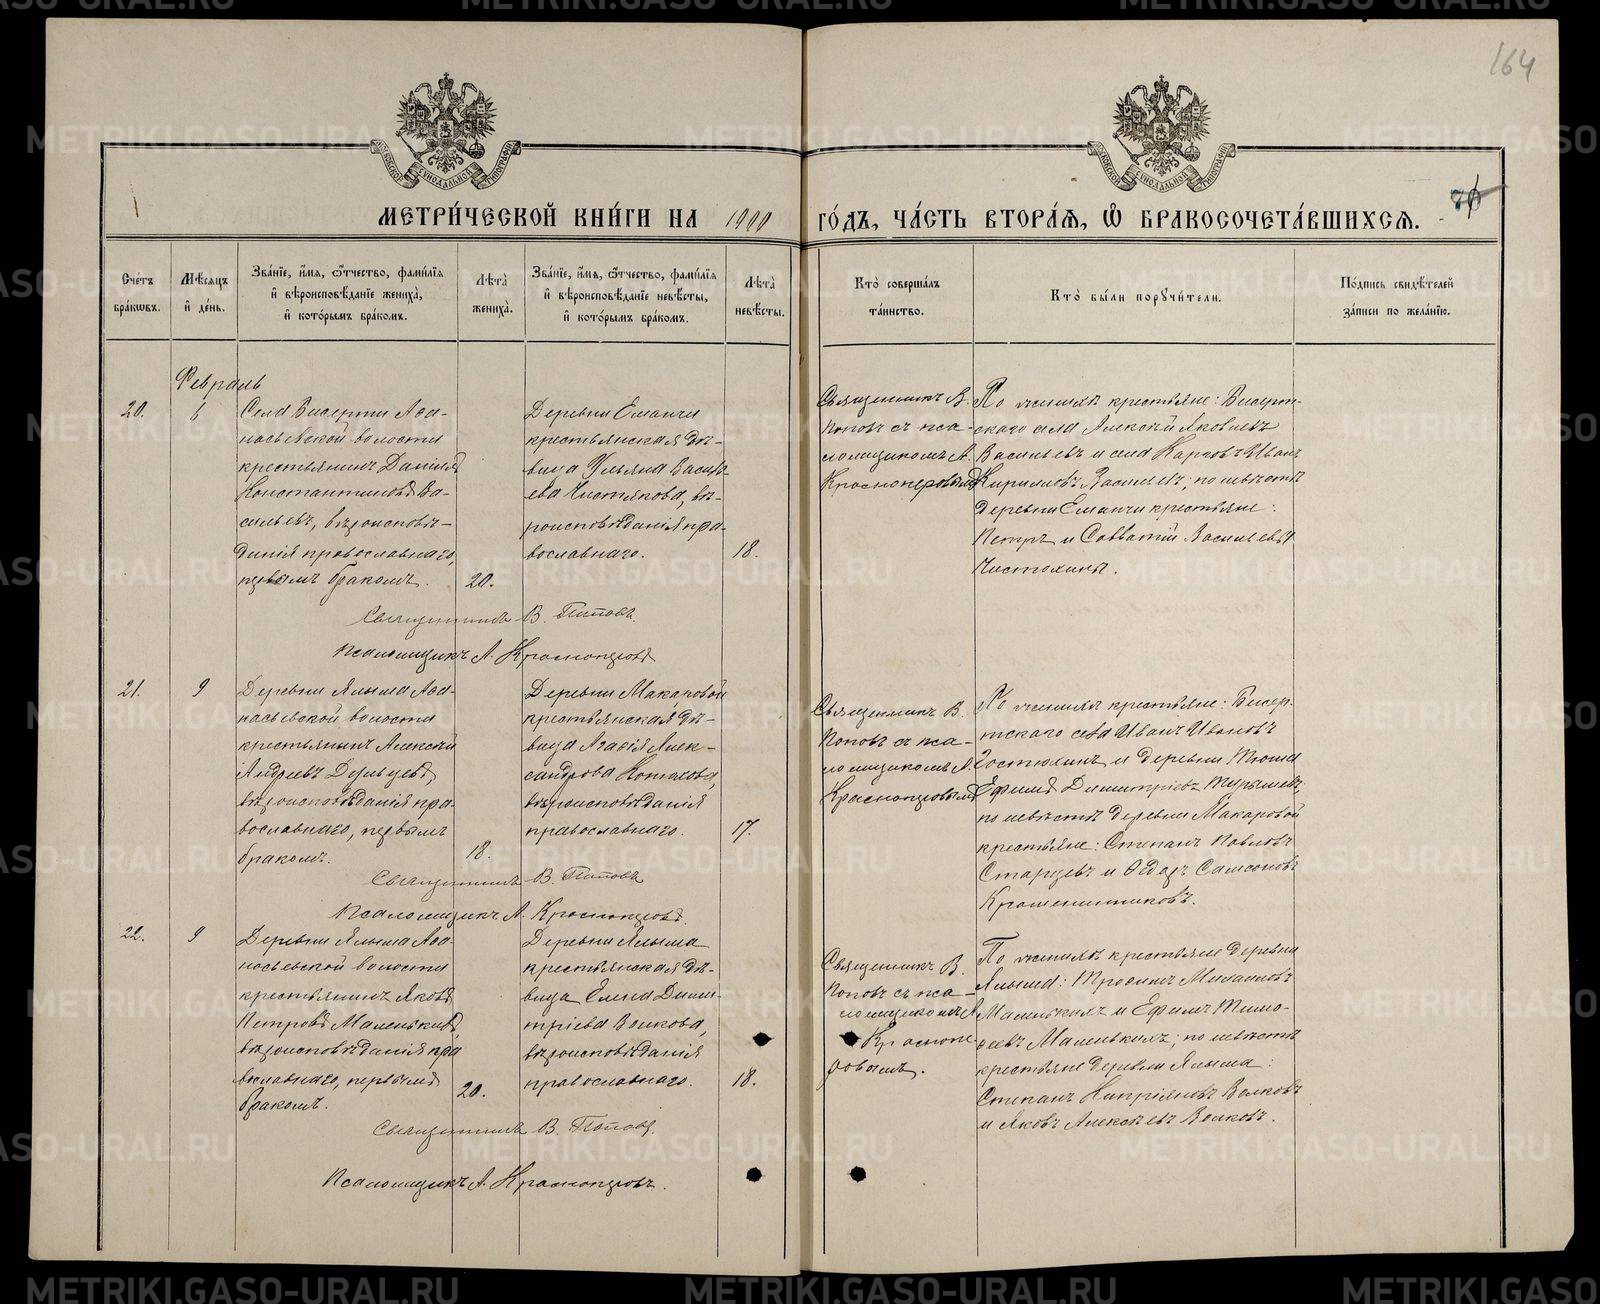 164
МОСКОВСКОЙ СѴНОДАЛЬНОЙ ТИПОГРАФІИ
МОСКОВСКОЙ СѴНОДАЛЬНОЙ ТИПОГРАФІИ
МЕТРИ́ЧЕСКОЙ КНИ́ГИ НА 1900 ГО́ДЪ, ЧА́СТЬ ВТОРА́Я, Ѽ БРАКОСОЧЕТА́ВШИХСЯ.
Сче́тъ бра́кѡвъ.
Мѣ́сяцъ и҆ де́нь.
Зва́нїе, и҆́мя, ѻ҆́тчество, фами́лїя и҆ вѣроисповѣ́данїе жениха̀, и҆ кото́рымъ бра́комъ.
Лѣта̀ жениха̀.
Зва́нїе, и҆́мя, ѻ҆́тчество, фами́лїя и҆ вѣроисповѣ́данїе невѣ́сты, и҆ кото́рымъ бра́комъ.
Лѣта̀ невѣ́сты.
Кто̀ соверша́лъ та́инство.
Кто̀ бы́ли порꙋчи́тели.
По́дпись свидѣ́телей за́писи по жела́нїю.
Февраль
20.
6
Села Бисерти Афа-
насьевской волости
крестьянинъ Даніилъ
Константиновъ Ва-
сильевъ, вѣроисповѣ-
данія православнаго,
первымъ бракомъ.
20.
Деревни Еманчи
крестьянская дѣ-
вица Ульяна Василь-
ева Чистякова, вѣ-
роисповѣданія пра-
вославнаго.
18.
Священникъ В.
Поповъ съ пса-
ломщикомъ А.
Красноперовымъ
По женихѣ крестьяне: Бисерт-
скаго села Алексѣй Яковлевъ
Васильевъ и Иванъ
Кирилловъ Васильевъ; по невѣстѣ
деревни Еманчи крестьяне:
Петръ и Савватій Васильевы
Священникъ В. Поповъ.
Псаломщикъ А. Красноперовъ
21.
9
Деревни Ялыма Афа-
насьевской волости
крестьянинъ Алексѣй
Андреевъ Дульцевъ,
вѣроисповѣданія пра-
вославнаго, первымъ
бракомъ.
18.
Деревни Макаровой
крестьянская дѣ-
вица Агафія Алек-
сандрова Конюхова,
вѣроисповѣданія
православнаго.
17.
Священникъ В.
Поповъ съ пса-
ломщикомъ А.
Красноперовымъ
По женихѣ крестьяне: Бисер-
тскаго села Иванъ Ивановъ
Гостюхинъ и деревни
Ефимъ Димитріевъ
по невѣстѣ деревни Макаровой
крестьяне: Степанъ Павловъ
Старцевъ и Ѳедоръ Самсоновъ
Крашенинниковъ.
Священникъ В. Поповъ
Псаломщикъ А. Красноперовъ.
22.
9
Деревни Ялыма Афа-
насьевской волости
крестьянинъ Яковъ
Петровъ Маленькихъ,
вѣроисповѣданія пра-
вославнаго, первымъ
бракомъ.
20.
Деревни Ялыма
крестьянская дѣ-
вица Елена Дими-
тріева Волкова,
вѣроисповѣданія
православнаго.
18.
Священникъ В.
Поповъ съ пса-
ломщикомъ А.
Краснопе-
ровымъ.
По женихѣ крестьяне деревни
Ялыма: Трофимъ Михаиловъ
Маленькихъ и Ефимъ Тимо-
феевъ Маленькихъ; по невѣстѣ
крестьяне деревни Ялыма:
Степанъ Кипріяновъ Волковъ
и Яковъ Алексѣевъ Волковъ.
Священникъ В. Поповъ.
Псаломщикъ А. Красноперовъ.
METRIKI.GASO-URAL.RU